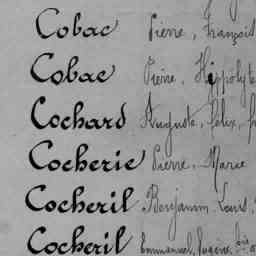 Cobac Pierre, François
Cobac Pierre, Hippolyte
Cochard Auguste, Félix,
Cocherie Pierre, Marie
Cocheril Benjamin, Louis,
Cocheril Emmanuel, Eugène,